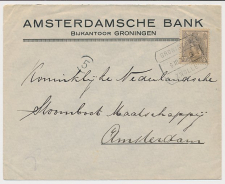 AMSTERDAMSCHE BANK
BIJKANTOOR GRONINGEN
Koninklijke Nederlandsche
Stoomboot Maatschappij
Amsterdam